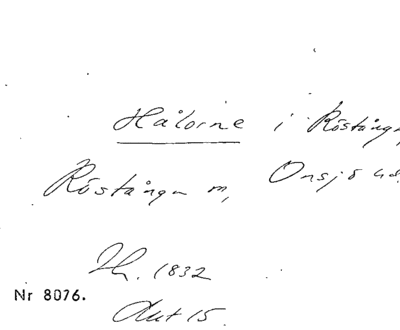 Hålorne i Röstånga,
Röstånga m, Onsjö hd.
Th. 1832
Nr 8076.
Aut 15.